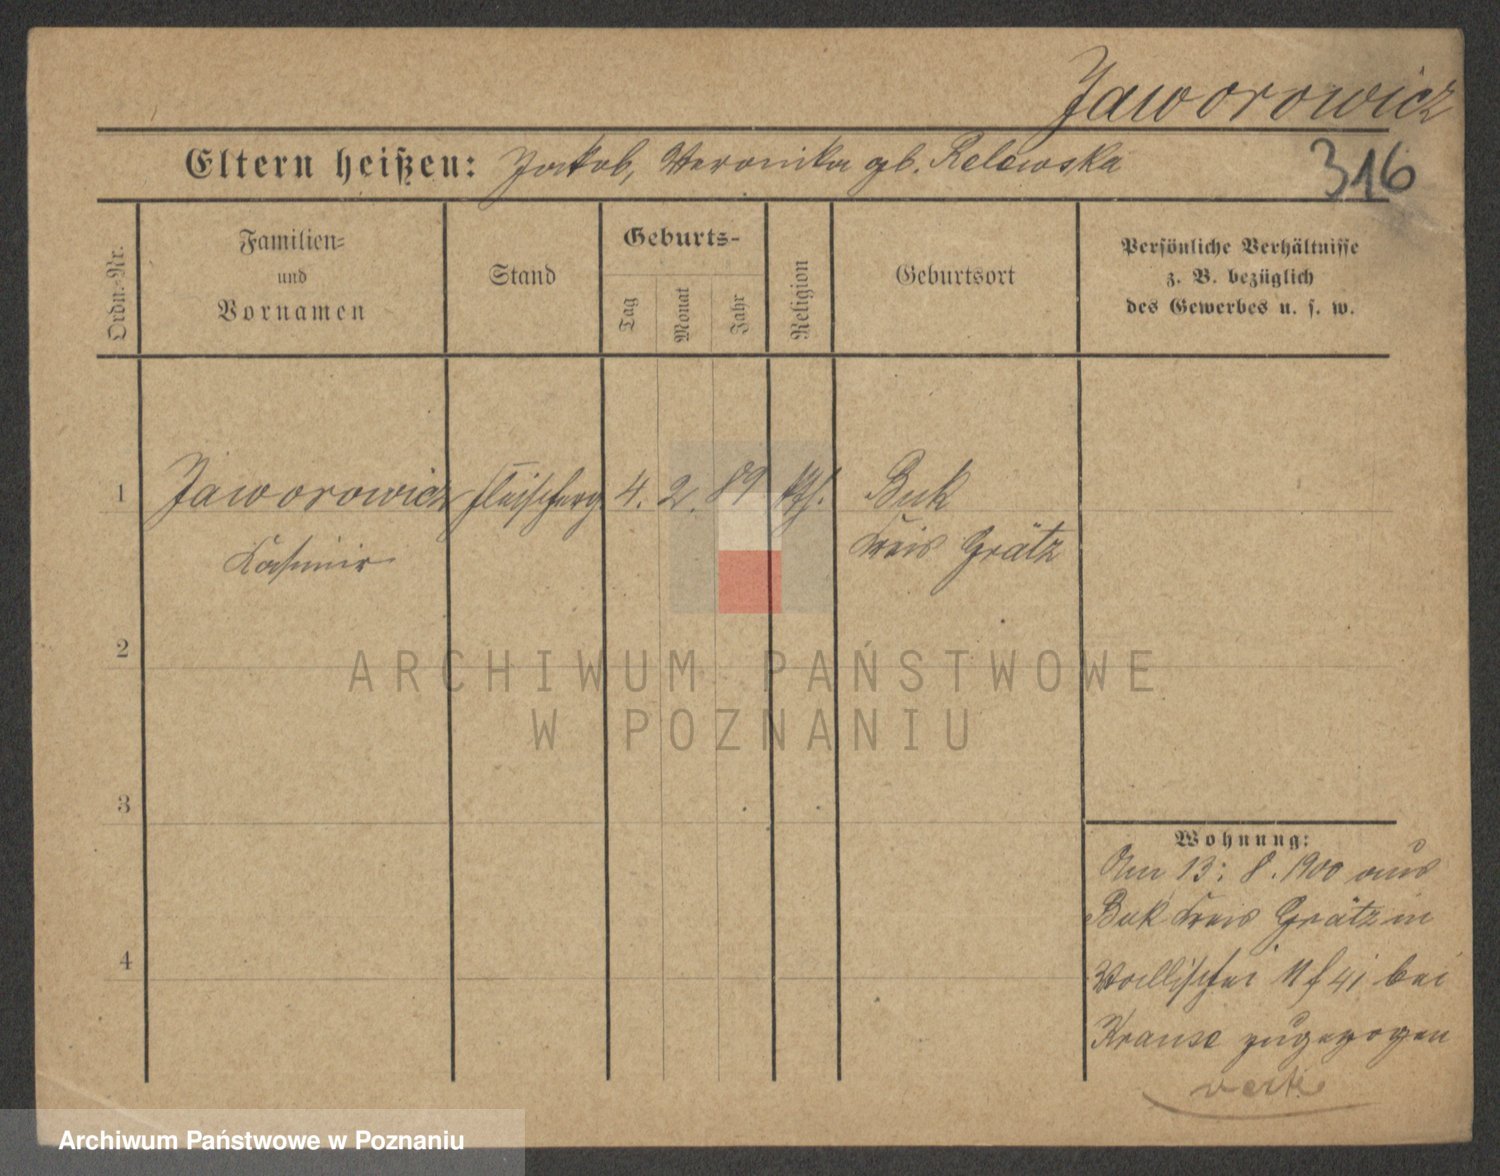 Jaworowicz
Eltern heißen: Jakob, Veronika gb. Relewska
316
Ordn.-Nr.
Familien-
und
Vornamen
Stand
Geburts-
Tag
Monat
Jahr
Religion
Geburtsort
Persönliche Verhältnisse
z. B. bezüglich
des Gewerbes u. s. w.
1 Jaworowicz 4. 2. 89 kth. Buk
Kasimir Kreis Grätz
2
ARCHIWUM PAŃSTWOWE
W POZNANIU
3
Wohnung:
Am 13. 8. 1900 aus
Buk Kreis Grätz in
Wallischei 41 bei
4
Krause zugezogen
Archiwum Państwowe w Poznaniu